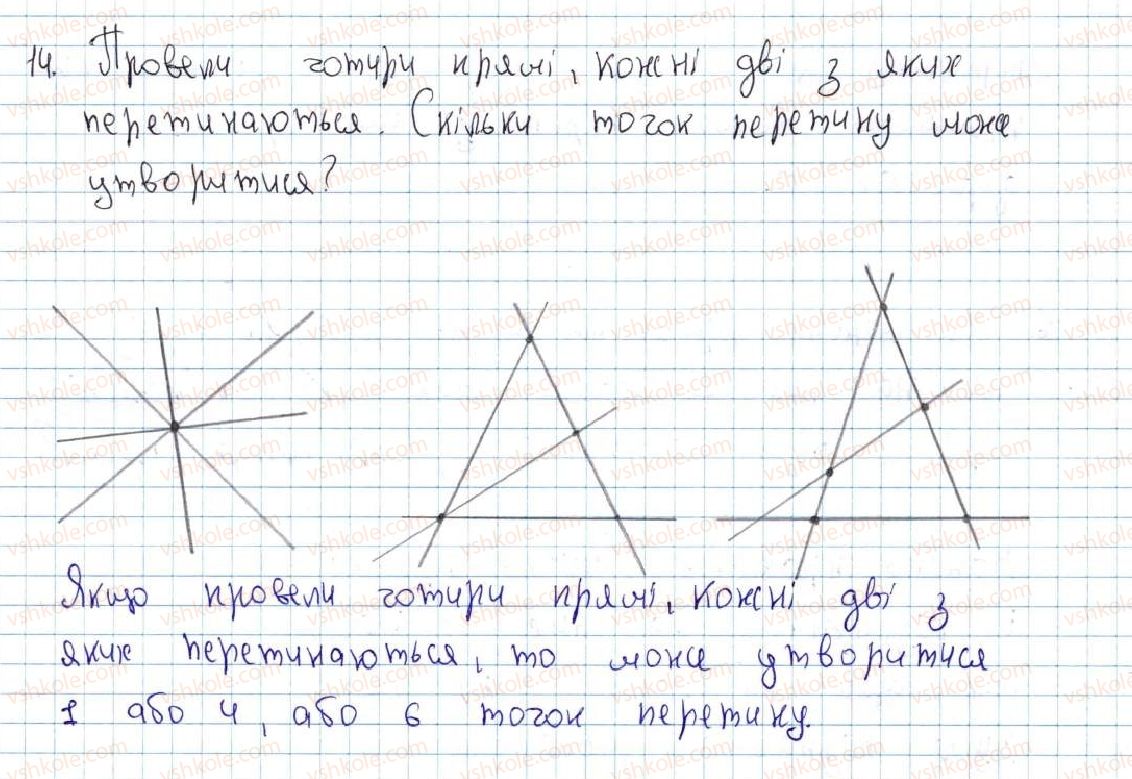 14. Провели чотири прямі, кожні дві з яких
перетинаються. Скільки точок перетину може
утворитися?
Якщо провели чотири прямі, кожні дві з
яких перетинаються, то може утворитися
1 або 4, або 6 точок перетину.